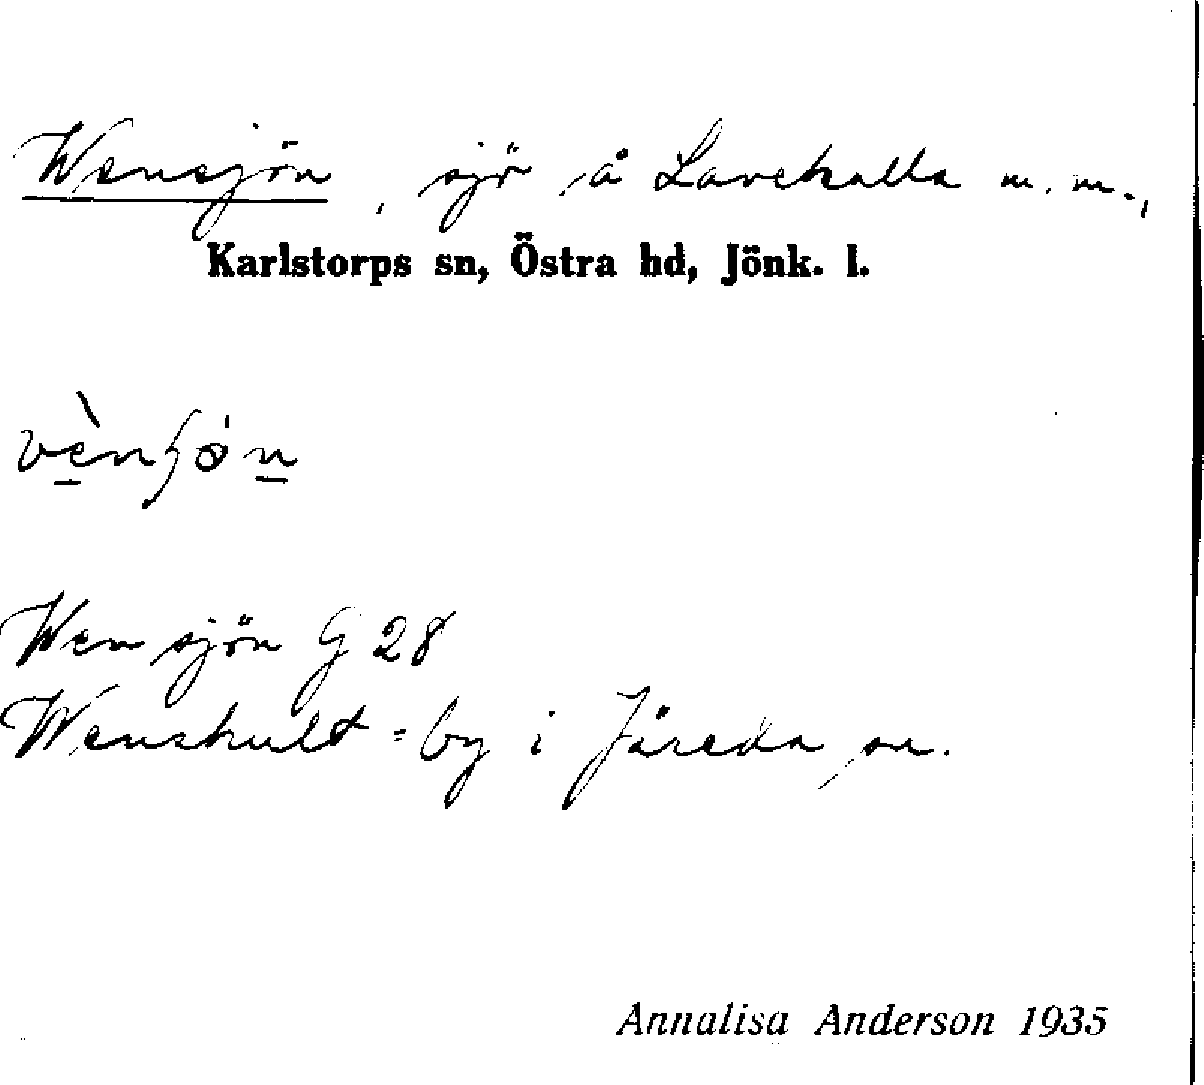 Wensjön, sjö å Lavekulla m. m.,
Karlstorps sn, Östra hd, Jönk. l.
Wensjön G 28
Wenshult = by i Järeda sn.
Annalisa Anderson 1935